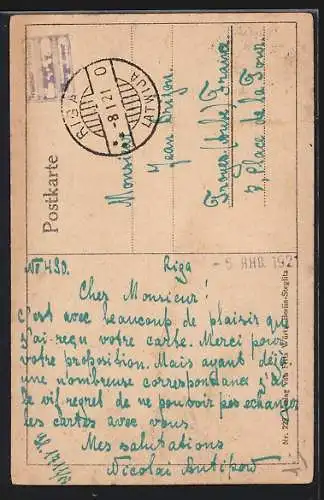 RIGA
-8 1 21
O
LATWIJA
Postkarte
Monsieur
Jean
Troyes (Aube) France
Place de la Tour
№ 490. Riga
- 5 ЯНВ. 192
Cher Monsieur!
C'est avec beaucoup de plaisir que
j'ai reçu votre carte. Merci pour
votre proposition. Mais ayant déjà
une nombreuse correspondance j'ai
le vif regret de ne pouvoir pas echanger
les cartes avec vous.
Mes salutations
Nicolai